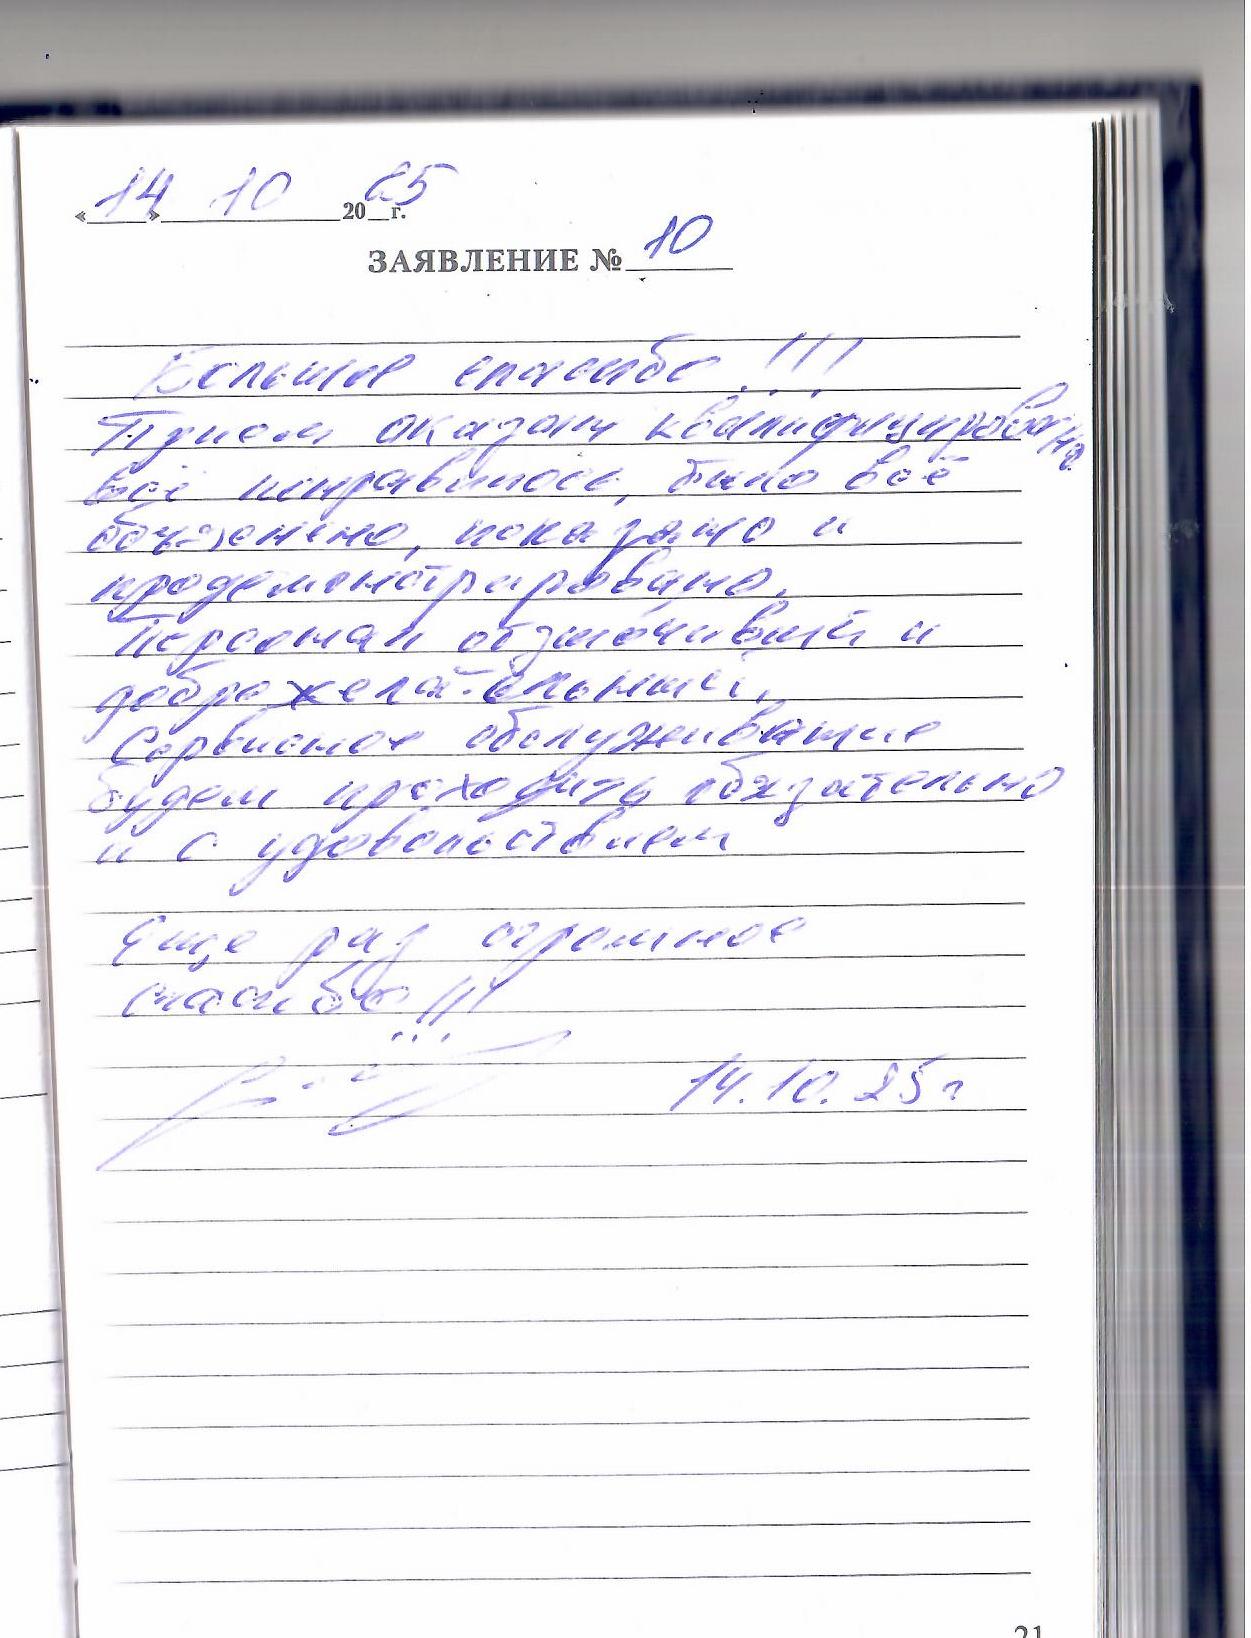 «14» 10 2025 г.
ЗАЯВЛЕНИЕ № 10
Большое спасибо!!!
Прием оказан квалифицирован
Всё понравилось, было всё
объяснено, показано и
продемонстрировано.
Персонал отзывчивый и
доброжелательный.
Сервисное обслуживание
будем проходить обязательно
и с удовольствием
Еще раз огромное
спасибо!!!
14.10.25 г
21